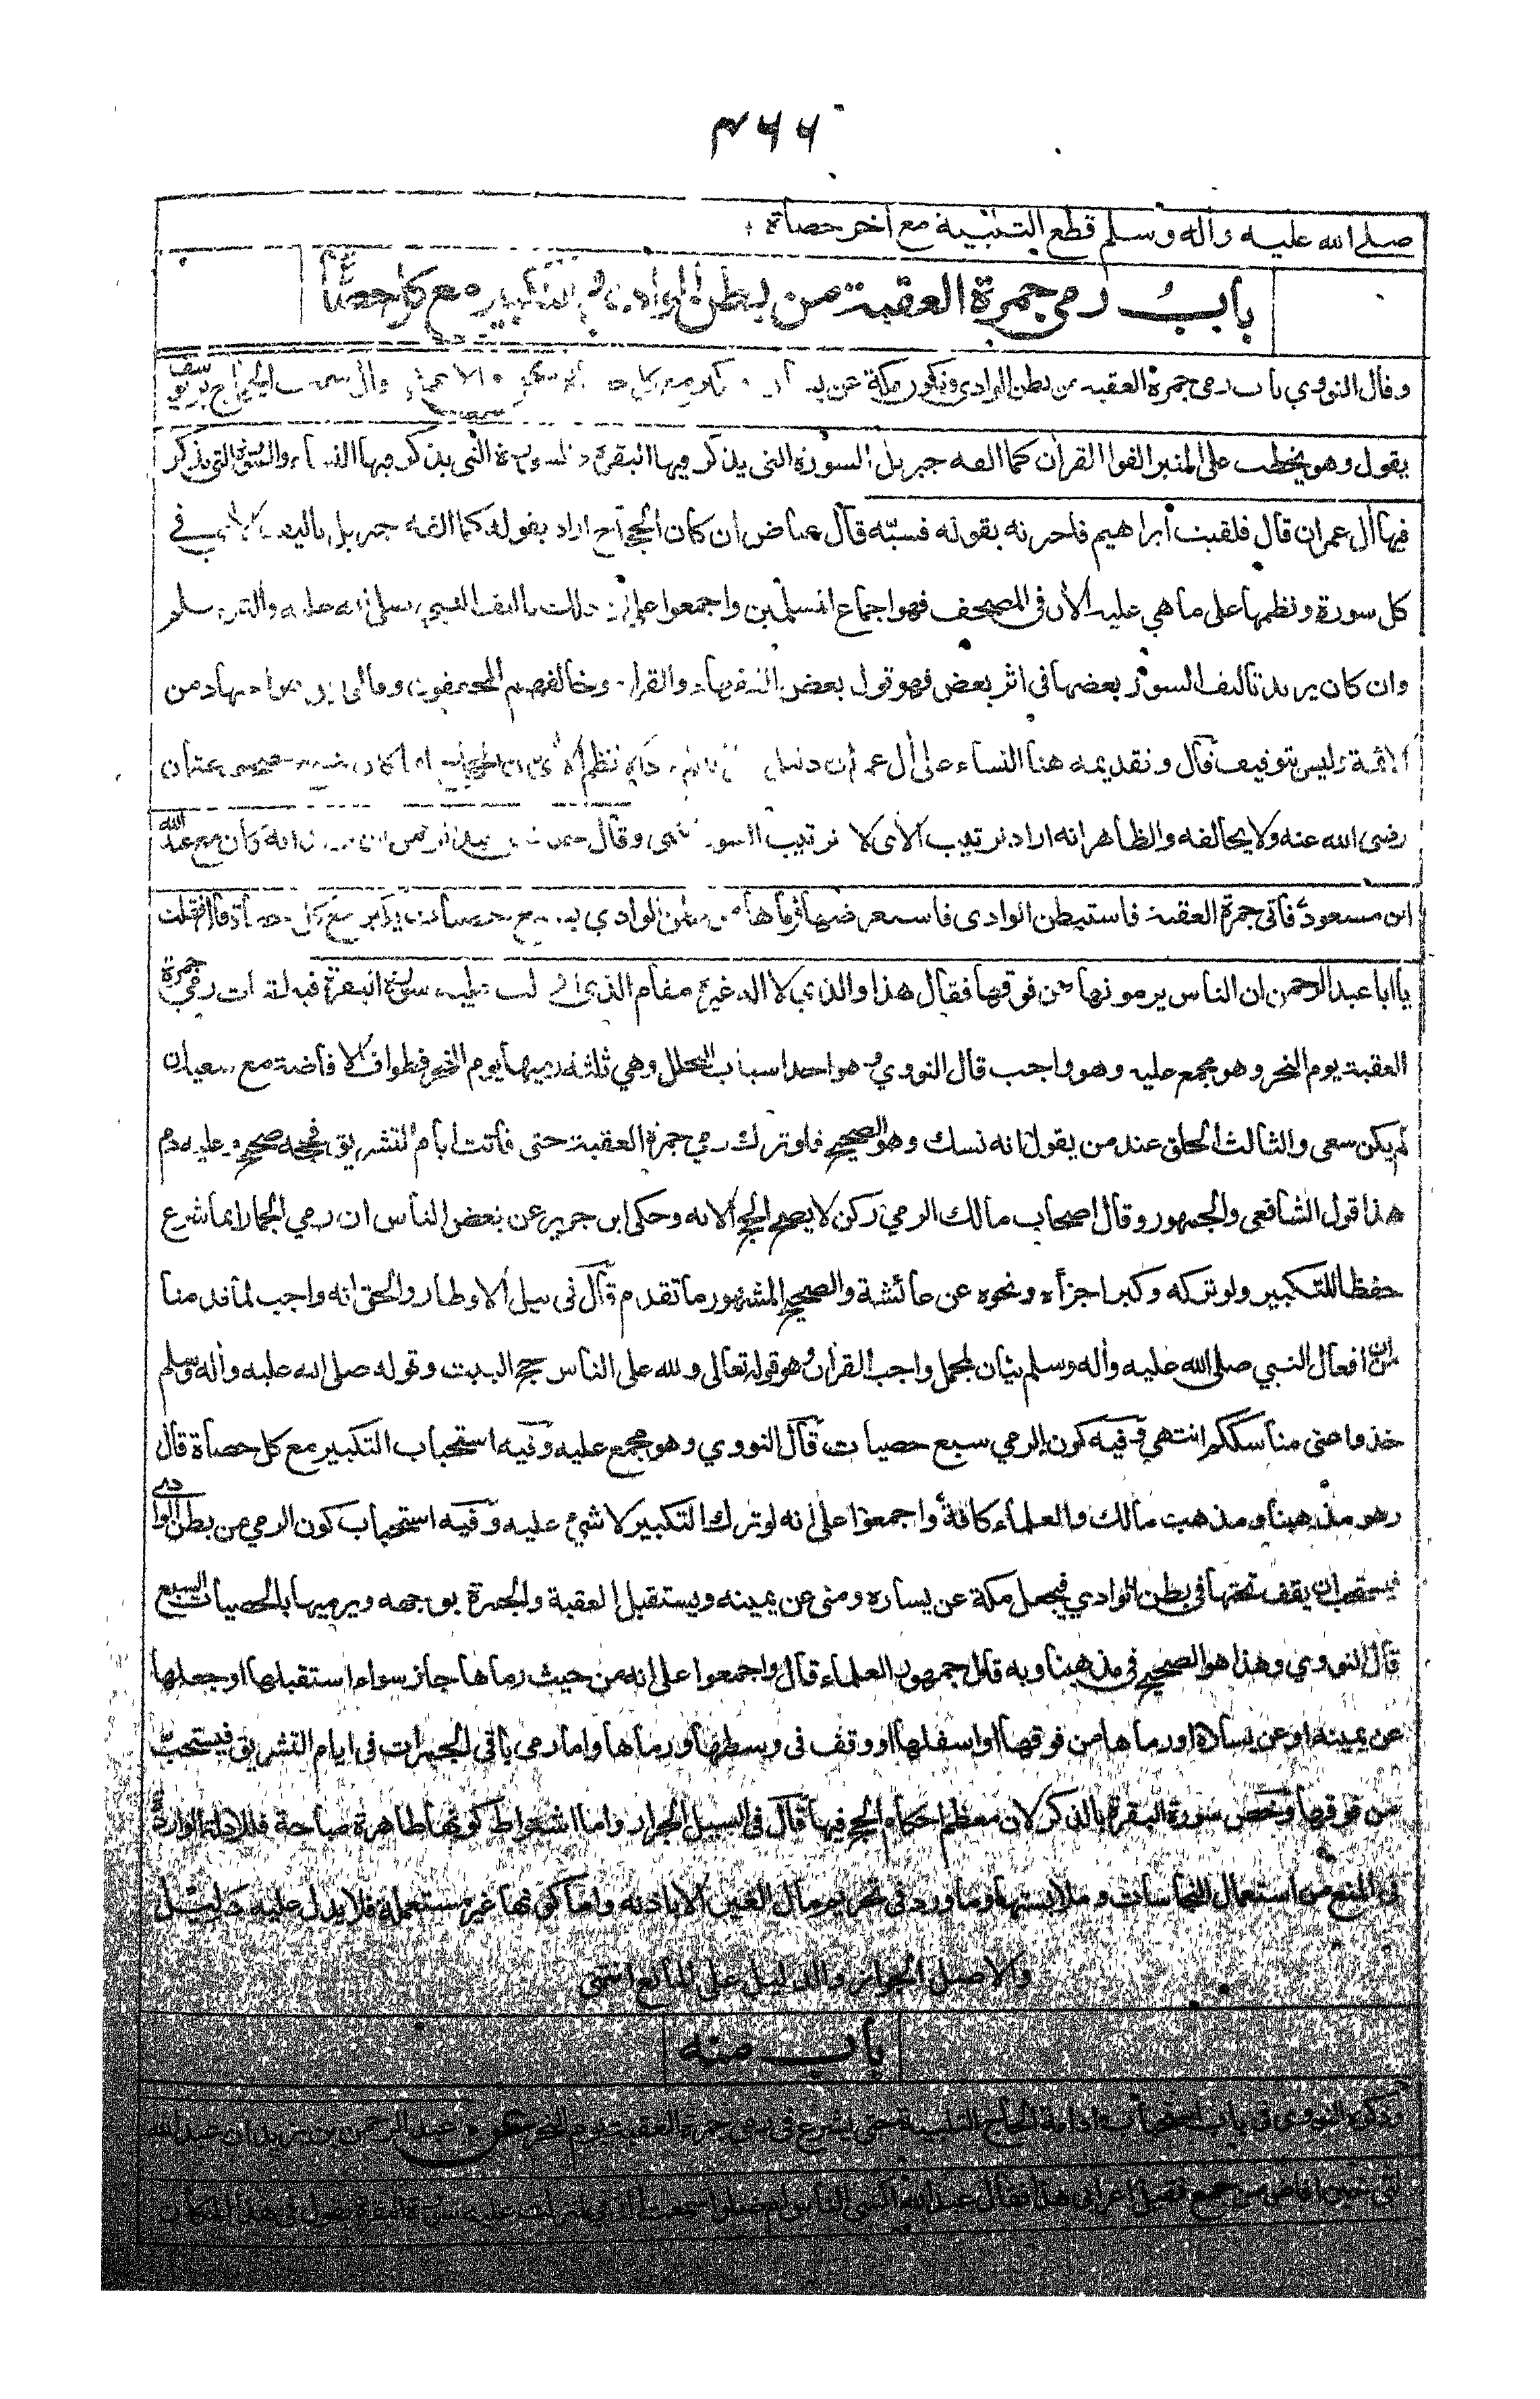 ۴۶۶
صلى الله عليه وأله وسلم قطع التلبية مع أخر حصاة
باب رمي جمرة العقبة من بطن الوادي و التكبير مع كل حصاة
وقال النووي باب رمي جمرة العقبة من بطن الوادي وتكون مكة عن الاعمش قال سمعت الحجاج بن يوسف
يقول وهو يخطب على المنبر الفوا القرأن كما الفه جبريل السورة التى يذكر فيها البقرة والسورة التى يذكر فيها النساء والسورة التى يذكر
فيها أل عمران قال فلقيت ابراهيم فاخبرته بقوله فسبّه قال عياض ان كان الحجاج اراد بقوله كما الفه جبريل تاليف الأي في
كل سورة ونظمها على ما هي عليه الأن فى المصحف فهو اجماع المسلمين واجمعوا على ان ذلك تاليف النبي صلى الله عليه وأله وسلم
وان كان يريد تاليف السور بعضها فى اثر بعض فهو قول بعض الفقهاء والقراء وخالفهم المحققون وقالوا بل هو اجتهاد من
الائمة وليس بتوقيف قال وتقديمه هنا النساء على أل عمران دليل نظم الأي لان الحجاج كان مصحف عثمان
رضى الله عنه ولا يخالفه والظاهر انه اراد ترتيب الأى لا ترتيب السور انتهى وقال انه كان مع عبد الله
ابن مسعود فأتى جمرة العقبة فاستبطن الوادى فاستعرضها فرماها من بطن الوادي بسبع حصيات يكبر مع كل حصاة قال فقلت
يا ابا عبد الرحمن ان الناس يرمونها من فوقها فقال هذا والذي لا اله غيره مقام الذي انزلت عليه سورة البقرة فيه اثبات رمي جمرة
العقبة يوم النحر وهو مجمع عليه وهو واجب قال النووي وهو احد اسباب التحلل وهي ثلثة رميها يوم النحر فطواف الافاضة مع سعيه ان
لم يكن سعى والثالث الحلق عند من يقول انه نسك وهو الصحيح فلو ترك رمي جمرة العقبة حتى فاتت ايام التشريق فحجه صحيح وعليه دم
هذا قول الشافعى والجمهور وقال اصحاب مالك الرمي ركن لا يصح الحج الا به وحكى ابن جرير عن بعض الناس ان رمي الجمار انما شرع
حفظا للتكبير ولو تركه وكبر اجزأه ونحوه عن عائشة والصحيح المشهور ما تقدم قال فى نيل الاوطار والحق انه واجب لما قدمنا
من ان افعال النبي صلى الله عليه وأله وسلم بيان لمجمل واجب القرأن وهو قوله تعالى ولله على الناس حج البيت وقوله صلى الله عليه وأله وسلم
خذوا عنى مناسككم انتهى وفيه كون الرمي سبع حصيات قال النووي وهو مجمع عليه وفيه استحباب التكبير مع كل حصاة قال
وهو مذهبنا ومذهب مالك والعلماء كافة واجمعوا على انه لو ترك التكبير لا شيء عليه وفيه استحباب كون الرمي من بطن الوادي
فيستحب ان يقف تحتها فى بطن الوادي فيجعل مكة عن يساره ومنى عن يمينه ويستقبل العقبة والجمرة بوجهه ويرميها بالحصيات السبع
قال النووي وهذا هو الصحيح فى مذهبنا وبه قال جمهور العلماء قال واجمعوا على انه من حيث رماها جاز سواء استقبلها او جعلها
عن يمينه او عن يساره او رماها من فوقها او اسفلها او وقف فى وسطها ورماها واما رمي باقي الجمرات فى ايام التشريق فيستحب
من فوقها وخص سورة البقرة بالذكر لان معظم احكام الحج فيها قال فى السيل الجرار واما اشتراط كونها طاهرة مباحة فللادلة الواردة
فى المنع من استعمال النجاسات وملابستها وما ورد فى تحريم مال الغير الا باذنه واما كونها غير مستعملة فلا يدل عليه دليل
والاصل الجواز والدليل على المانع انتهى
باب منه
وذكره النووى فى باب استحباب ادامة الحاج التلبية حتى يشرع فى رمي جمرة العقبة يوم النحر عن عبد الرحمن بن يزيد ان عبد الله
لبى حين افاض من جمع فقيل اعرابي هذا فقال عبد الله انسى الناس ام ضلوا سمعت الذي انزلت عليه سورة البقرة يقول فى هذا المكان